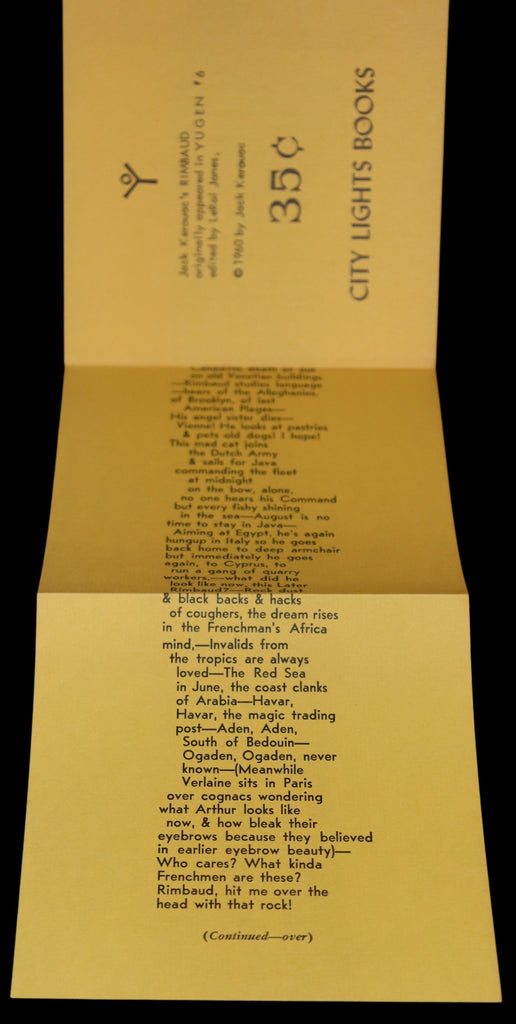 Jack Kerouac's RIMBAUD
originally appeared in YUGEN #6
edited by LeRoi Jones,
© 1960 by Jack Kerouac
35¢
CITY LIGHTS BOOKS
death of sun
on old Venetian buildings
—Rimbaud studies language
—hears of the Alleghanies,
of Brooklyn, of last
American Plages—
His angel sister dies—
Vienne! He looks at pastries
& pets old dogs! I hope!
This mad cat joins
the Dutch Army
& sails for Java
commanding the fleet
at midnight
on the bow, alone,
no one hears his Command
but every fishy shining
in the sea—August is no
time to stay in Java—
Aiming at Egypt, he's again
hungup in Italy so he goes
back home to deep armchair
but immediately he goes
again, to Cyprus, to
run a gang of quarry
workers,—what did he
look like now, this Later
Rimbaud?—Rock dust
& black backs & hacks
of coughers, the dream rises
in the Frenchman's Africa
mind,—Invalids from
the tropics are always
loved—The Red Sea
in June, the coast clanks
of Arabia—Havar,
Havar, the magic trading
post—Aden, Aden,
South of Bedouin—
Ogaden, Ogaden, never
known—(Meanwhile
Verlaine sits in Paris
over cognacs wondering
what Arthur looks like
now, & how bleak their
eyebrows because they believed
in earlier eyebrow beauty)—
Who cares? What kinda
Frenchmen are these?
Rimbaud, hit me over the
head with that rock!
(Continued—over)